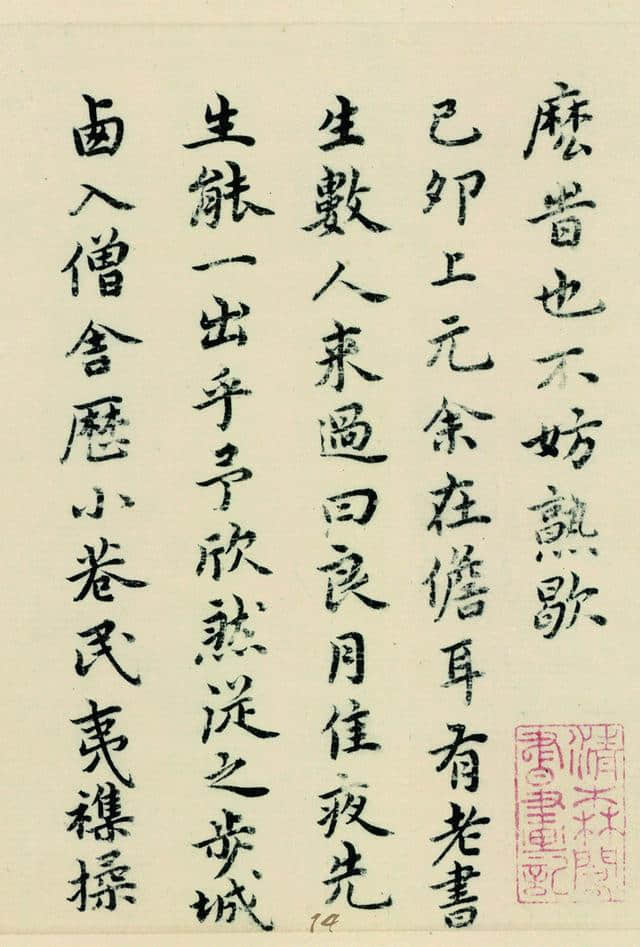 麽旹也不妨熟歇
己卯上元余在儋耳有老書
生數人来過曰良月佳夜先
生能一出乎予欣然從之步城
卥入僧舍歷小巷民夷襍揉
清森閣
書畫記
14